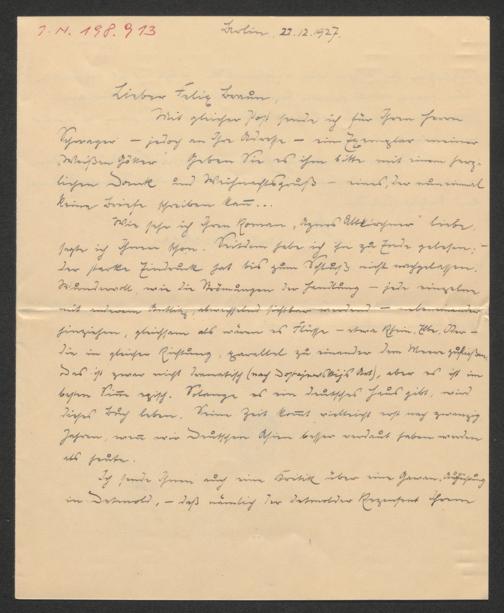 I. N. 198.913
Berlin, 22.12.1927.
Lieber Felix Braun,
Mit gleicher Post sende ich für Ihren Herrn
Schwager – jedoch an Ihre Adresse – ein Exemplar meiner
„Weißen Götter". Geben Sie es ihm bitte mit einem herz-
lichen Dank und Weihnachtsgruß – eines, der nun einmal
keine Briefe schreiben kann...
Wie sehr ich Ihren Roman „Agnes Altkirchner" liebe,
sagte ich Ihnen schon. Seitdem habe ich ihn zu Ende gelesen; –
der starke Eindruck hat bis zum Schluß nicht nachgelassen.
Wundervoll wie die Strömungen der Handlung – jede einzelne
mit anderem Antlitz, abwechselnd sichtbar werdend – nebeneinander
hinziehen, gleichsam als wären es Flüsse – etwa Rhein, Elbe, Oder –
die in gleicher Richtung, parallel zu einander dem Meere zufließen.
Das ist zwar nicht dramatisch (nach Dostojewskijs Art), aber es ist im
besten Sinne episch. Solange es ein deutsches Haus gibt, wird
dieses Buch leben. Seine Zeit kommt vielleicht erst nach zwanzig
Jahren, wenn wir Deutschen besser verdaut haben werden
als heute.
Ich sende Ihnen auch eine Kritik über eine Gawan-Aufführung
in Detmold, – daß nämlich der Detmolder Rezensent Ihrem